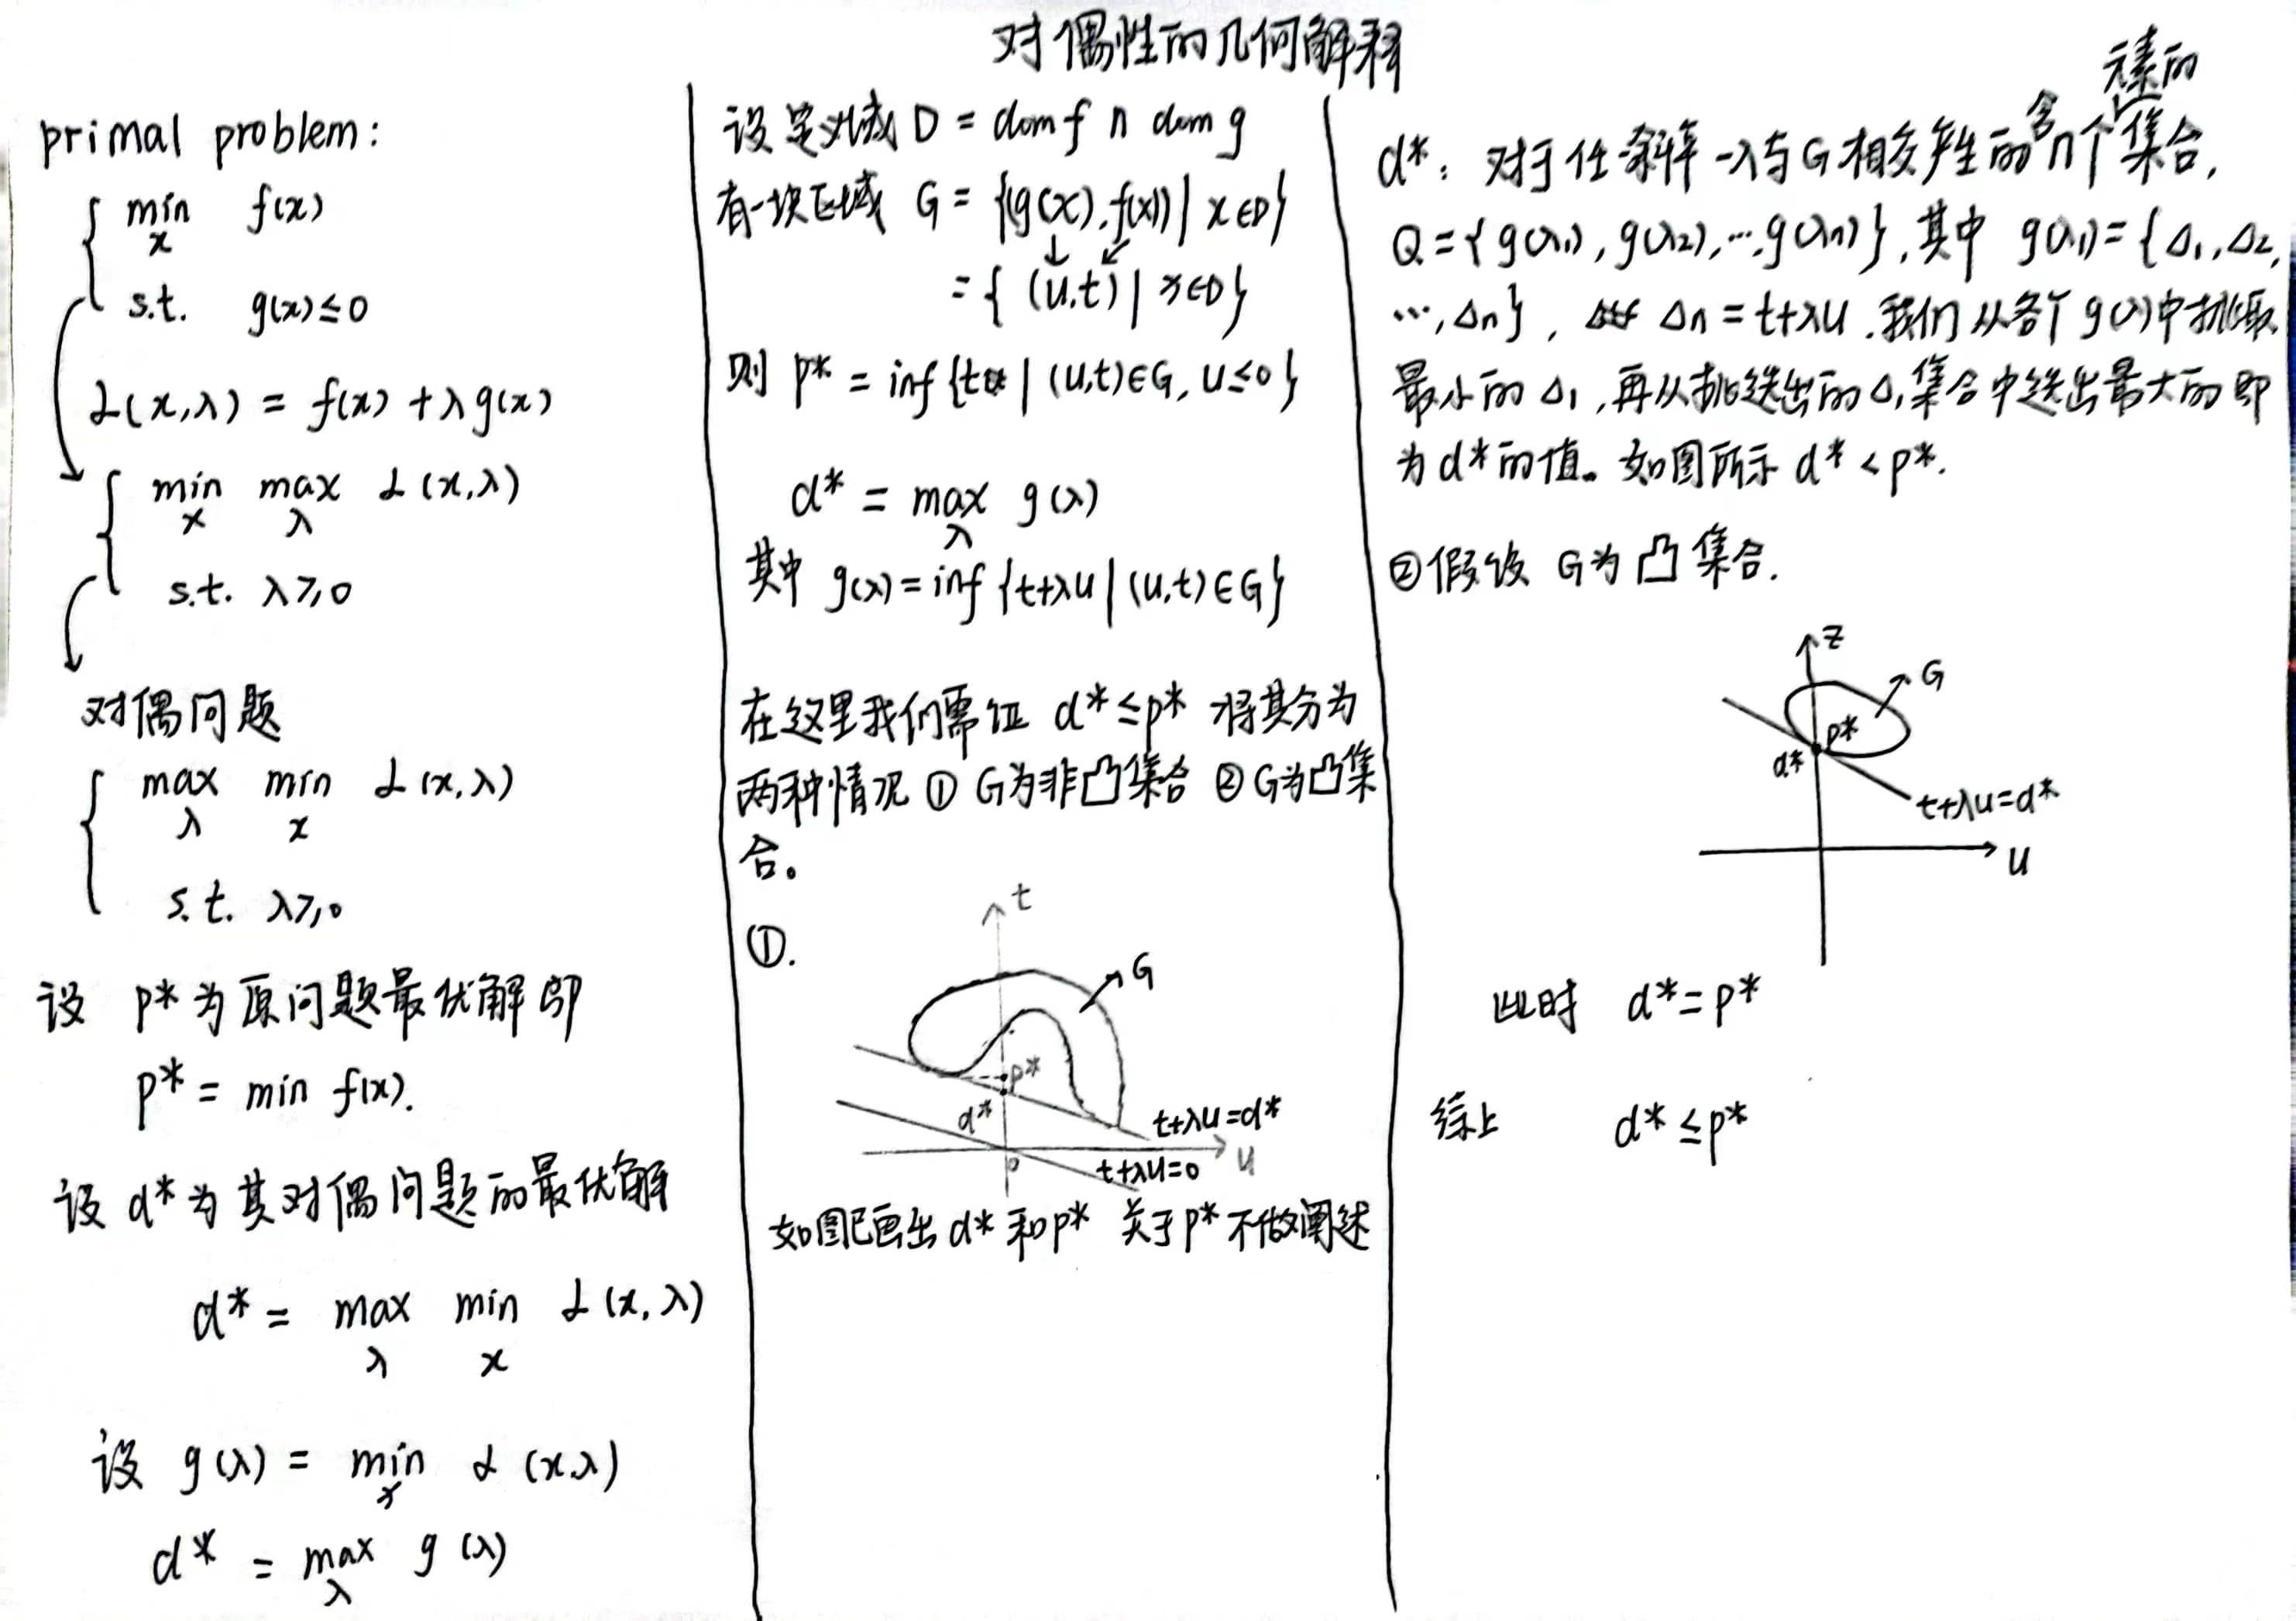 对偶性的几何解释
primal problem:
min f(x)
x
s.t. g(x)≤0
L(x,λ) = f(x) + λg(x)
min max L(x,λ)
x λ
s.t. λ≥0
对偶问题
max min L(x,λ)
λ x
s.t. λ≥0
设 p* 为原问题最优解即
p* = min f(x).
设 d* 为其对偶问题的最优解
d* = max min L(x,λ)
λ x
设 g(λ) = min L(x,λ)
x
d* = max g(λ)
λ
设定义域 D = dom f ∩ dom g
有一块区域 G = {(g(x),f(x)) | x∈D}
↓ ↙
= { (u,t) | x∈D}
则 p* = inf {t | (u,t)∈G, u≤0}
d* = max g(λ)
λ
其中 g(λ) = inf {t+λu | (u,t)∈G}
在这里我们需证 d*≤p* 将其分为
两种情况 ① G为非凸集合 ② G为凸集
合。
①.
t
G
p*
d*
t+λu=d*
o
t+λu=0
u
如图已画出 d* 和 p* 关于 p* 不做阐述
元素的
含
d*: 对于任斜率 -λ与G相交产生的n个集合,
Q = {g(λ1), g(λ2), …, g(λn)}, 其中 g(λ1) = {Δ1, Δ2,
…, Δn}, Δn = t+λu. 我们从各个 g(λ)中挑取
最小的 Δ1, 再从挑选出的Δ1集合中选出最大的即
为 d* 的值。如图所示 d* < p*.
②假设 G为凸集合.
z
G
p*
d*
t+λu=d*
u
此时 d* = p*
综上 d* ≤ p*